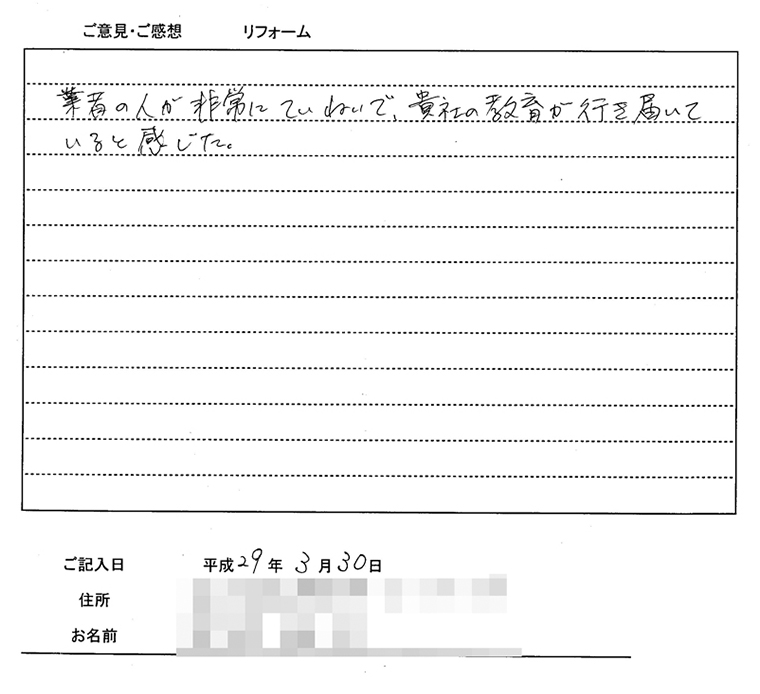 ご意見・ご感想 リフォーム
業者の人が非常にていねいで、貴社の教育が行き届いて
いると感じた。
ご記入日 平成29年3月30日
住所
お名前